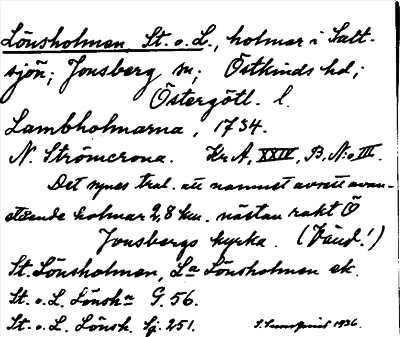 Lönsholmen, St. o. L., holmar i Salt-
sjön; Jonsberg sn; Östkinds hd;
Östergötl. l.
Lambholmarna, 1734.
N. Strömcrona. Kr. A, XXIV, B. N:o III.
Det synes tral. att namnet avsett avan-
stående holmar 2,8 km. nästan rakt Ö
Jonsbergs kyrka. (Vänd!)
St. Lönsholmen, La Lönsholmen ek.
St. o. L. Lönsh:n G. 56.
St. o. L. Lönsh. Sj. 251.
1936.